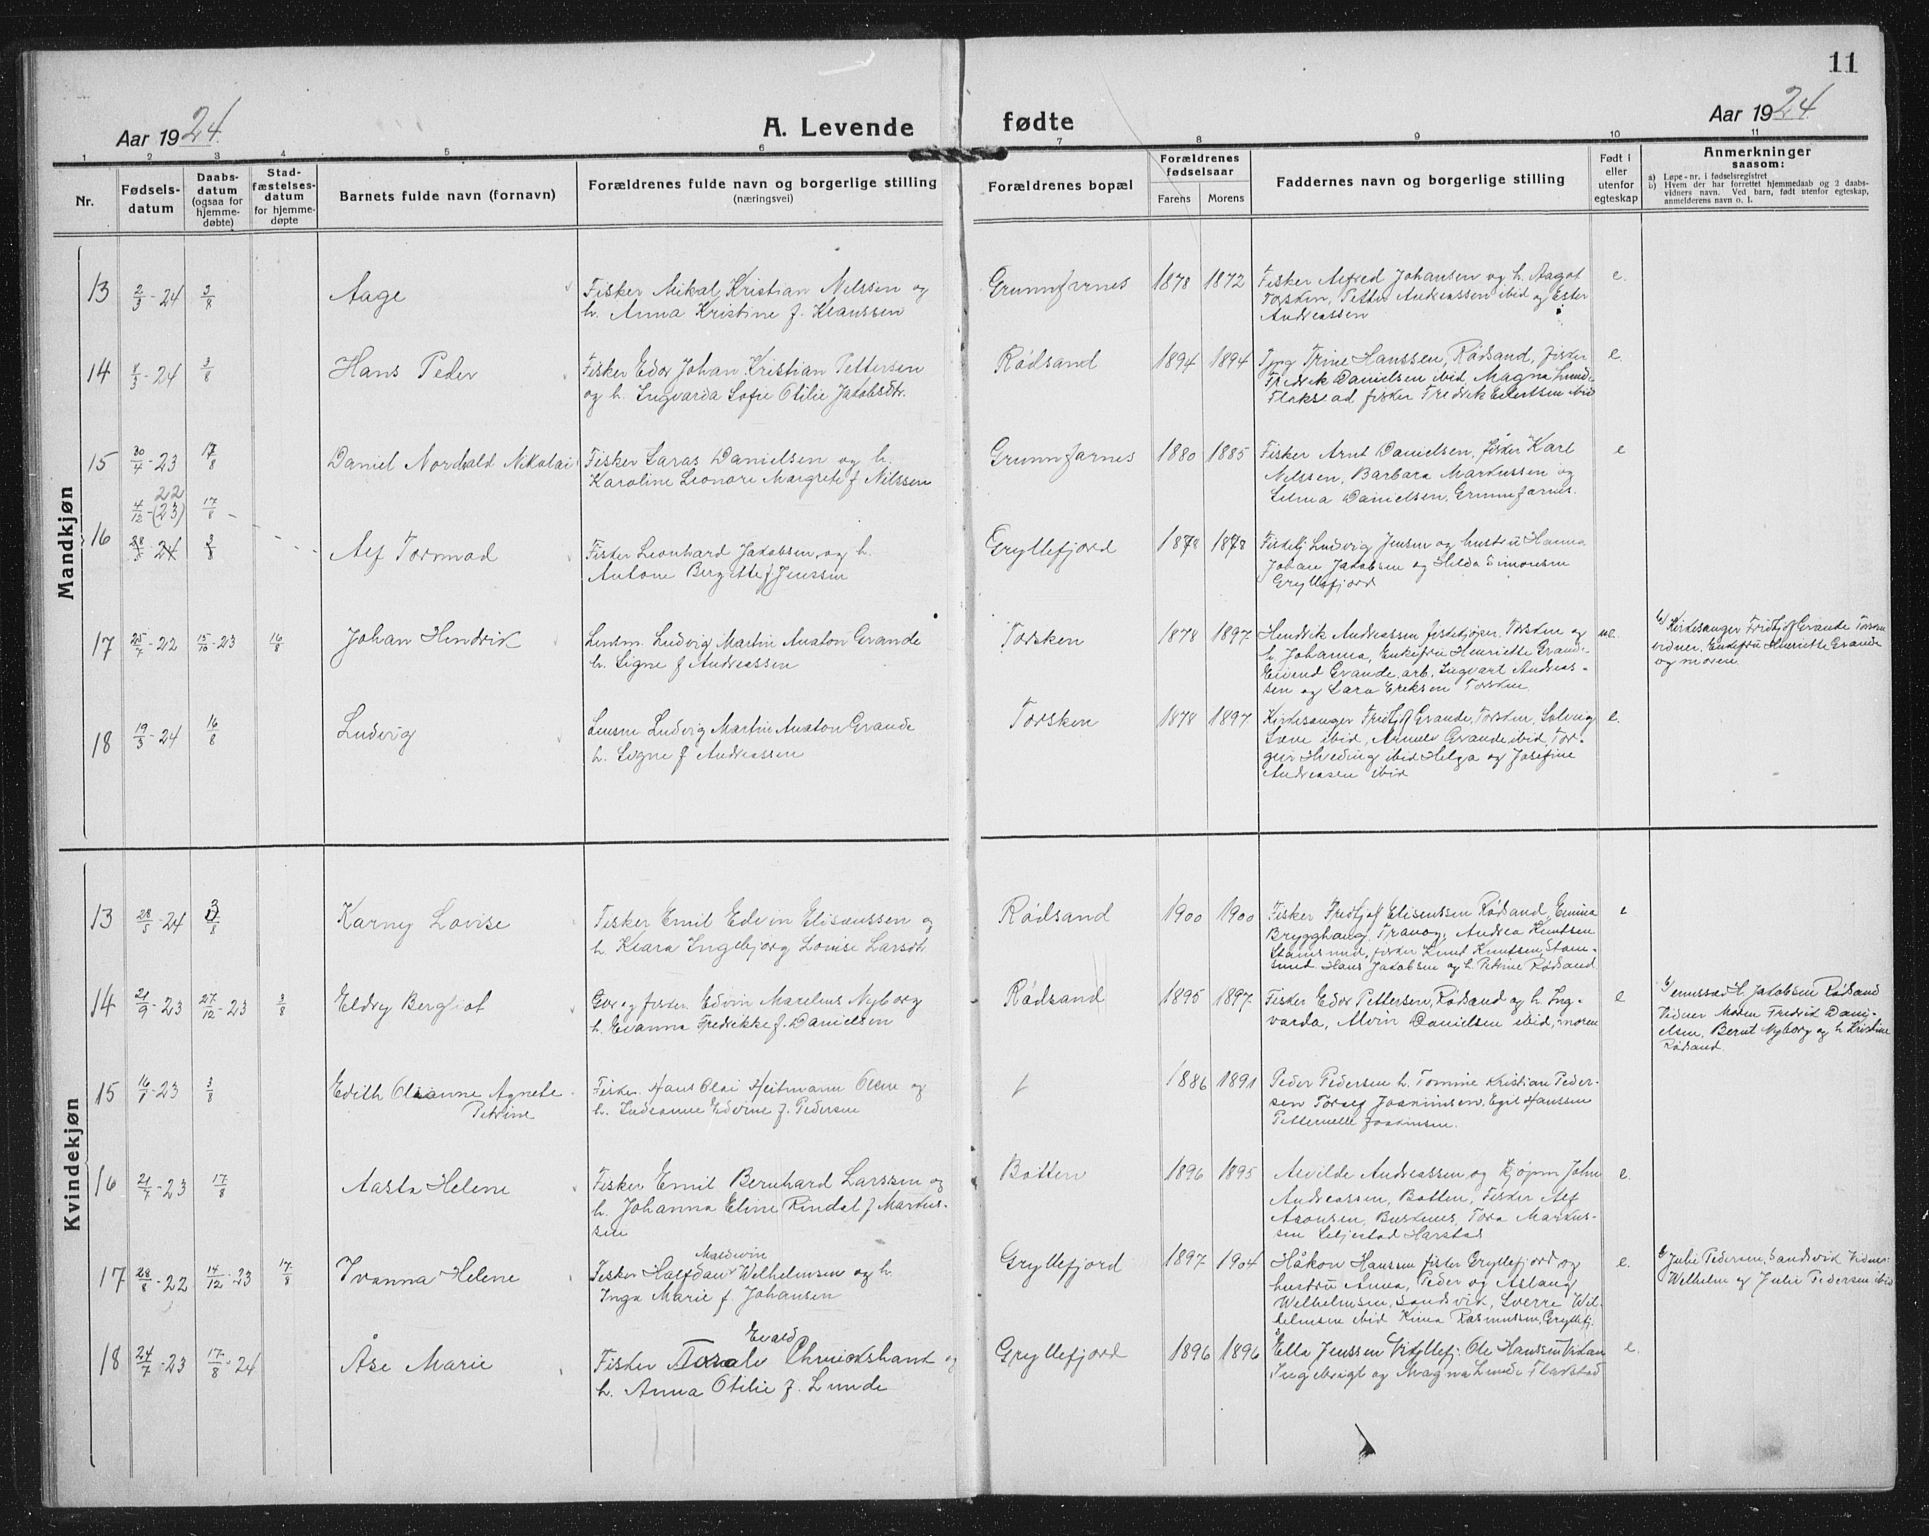 11
Aar 1924. A. Levende fødte Aar 1924.
1 2 3 4 5 6 7 8 9 10 11
Nr.
Fødsels-
datum
Daabs-
datum
(ogsaa for
hjemme-
døbte)
Stad-
fæstelses-
datum
for hjemme-
døpte
Barnets fulde navn (fornavn)
Forældrenes fulde navn og borgerlige stilling
(næringsvei)
Forældrenes bopæl
Forældrenes
fødselsaar
Farens Morens
Faddernes navn og borgerlige stilling
Født i
eller
utenfor
egteskap
Anmerkninger
saasom:
a) Løpe-nr. i fødselsregistret
b) Hvem der har forrettet hjemmedaab og 2 daabs-
vidners navn. Ved barn, født utenfor egteskap,
anmelderens navn o. l.
Mandkjøn
13 2/3-24 3/8 Aage
Fisker Mikal Kristian Nilssen og
h. Anna Kristine f. Klaussen
Grunnfarnes 1878 1872
Fisker Alfred Johansen og h. Aagot
Torsken, Petter Andreassen ibid og Ester
Andreassen
e.
14 4/3-24 3/8 Hans Peder
Fisker Edor Johan Kristian Pettersen
og h. Ingvarda Sofie Otilie Jakobsdtr.
Rødsand 1894 1894
Trine Hanssen, Rødsand, fisker
Fredrik Danielsen ibid, Magna Lund
Flakstad fisker Fredrik Eilertsen ibid
e.
15 30/4-23 17/8 Daniel Nordvald Nikolai
Fisker Laras Danielsen og h.
Karoline Leonore Margrete f Nilssen
Grunnfarnes 1880 1885
Fisker Arnt Danielsen, fisker Karl
Nilssen, Barbara Markussen og
Selma Danielsen, Grunnfarnes.
e
22
4/12-(23) 17/8
16 28/5 24 3/8 Alf Tormod
Fisker Leonhard Jakobsen og h.
Antone Bergitte f Jenssen
Gryllefjord 1878 1878
Ludvig Jensen og hustru Hanna
Johan Jakobsen og Hilda Simonsen
Gryllefjord
17 25/4-22 15/10-23 16/8 Johan Hendrik
Lensm. Ludvig Martin Anaton Grande
h. Signe f Andreassen
Torsken 1878 1897
Hendrik Andreassen Torsken og
h. Johanna, Enkefru Henriette Grande
Eivend Grande, arb. Ingvart Andreas-
sen og Sara Eriksen Torsken.
ue.
b) Kirkesanger Fridtjof Grande Torsken
vidner, Enkefru Henriette Grande
og moren
18 19/3-24 16/8 Ludvig
Lensm Ludvig Martin Anaton Grande
h. Signe f Andreassen
Torsken 1878 1897
Kirkesanger Fridtjof Grande, Torsken, Solveig
Læve ibid, Grande ibid, Tor-
geir Hveding ibid Helga og Josefine
Andreassen ibid
e.
Kvindekjøn
3
13 28/5-24 17/8 Karny Lovise
Fisker Emil Edvin Elisæussen og
h. Klara Ingebjorg Lovise Larsdtr
Rødsand 1900 1900
Fisker Fridtjof Eliseussen Rødsand, Emma
Brygghaug, Tranøy, Andrea Knutsen
Stamsund, fisker Knut Knutsen, Stam-
sund. Hans Jakobsen og h. Petrine Rødsand
e
14 21/9-23 27/12-23 3/8 Eldry Bergliot
Gbr og fisker Edvin Marelius Nyborg
h. Evanna Fredrikke f. Danielsen
Rødsand 1895 1897
Fisker Edor Pettersen, Rødsand og h. Ing-
varda, Alvin Danielsen ibid, moren
e
Jakobsen Rødsand
Vidner Moren Fredrik Dani-
elsen, Bernt Nyborg og h Kristine
Rødsand
15 16/1-23 3/8 Edith Olsianne Agnete
Petrine
Fisker Hans Olai Heitmann Olsen og
h. Ludianne Edvine f. Pedersen
1886 1891
Peder Pedersen h. Tomine Kristian Peder-
sen Torleif Joakimsen, Egil Hanssen
Petternelle Joakimsen.
16 21/7-23 17/8 Aasta Helene
Fisker Emil Bernhard Larssen og
h. Johanna Eline Rindal f Markus-
sen
Botten 1896 1895
Alvilde Andreassen og John
Andreassen, Botten, Fisker Alf
Aronsen, Buskenes, Tora Markus-
sen Seljestad Harstad
e.
17 28/8-22 14/12-23 17/8 Ivanna Helene
Maldwin
Fisker Halfdan Welhelmsen og h
Inga Marie f. Johansen
Gryllefjord 1897 1904
Håkon Hansen fisker Gryllefjord og
hustru Anna, Peder og Aslaug
Wilhelmsen, Sandsvik, Sverre Wil-
helmsen ibid Kima Rasmussen, Gryllefj.
e.
b) Julie Pedersen, Sandsvik Vidner:
Wilhelm og Julie Pedersen ibid
18 24/7-23 17/8-24 Åse Marie
Evald
Fisker Chruickshank og
h. Anna Otilie f. Lunde
Gryllefjord 1896 1896
Ella Jenssen Gryllefj. Ole Hanssen
Ingebrigt og Magna Lunde Flakstad
e.